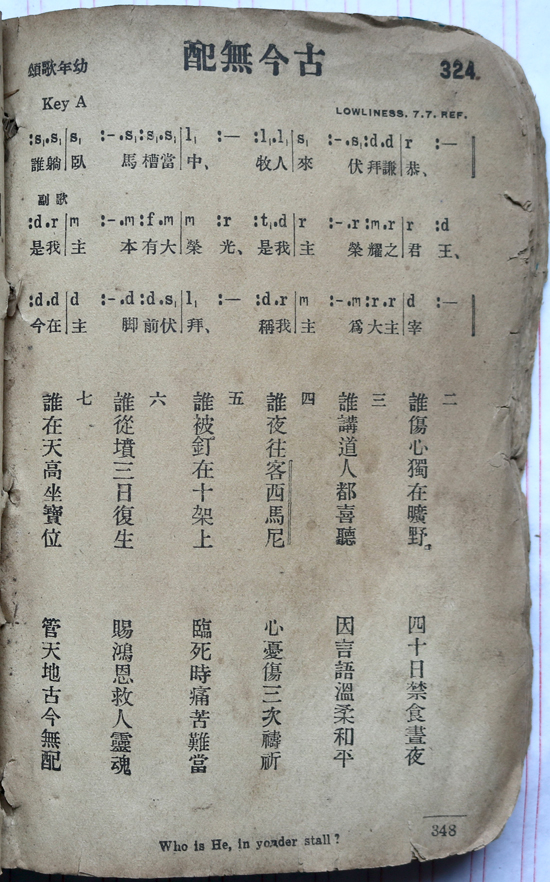 324.
古今無配
幼年歌頌
Key A
LOWLINESS. 7.7. REF.
:s₁.s₁|s₁ :-.s₁:s₁.s₁|l₁ :— :l₁.l₁|s₁ :-.s₁:d.d|r :—
誰躺臥 馬槽當中、 牧人來 伏拜謙恭、
副歌
:d.r|m :-.m:f.m|m :r :t₁.d|r :-.r:m.r|r :d
是我主 本有大榮光、是我主 榮耀之君王、
:d.d|d :-.d:d.s₁|l₁ :— :d.r|m :-.m:r.r|d :—
今在主 脚前伏拜、 稱我主 爲大主宰
二
誰傷心獨在曠野。 四十日禁食晝夜
三
誰講道人都喜聽 因言語溫柔和平
四
誰夜往客西馬尼 心憂傷三次禱祈
五
誰被釘在十架上 臨死時痛苦難當
六
誰從墳三日復生 賜鴻恩救人靈魂
七
誰在天高坐寶位 管天地古今無配
348
Who is He, in yonder stall?